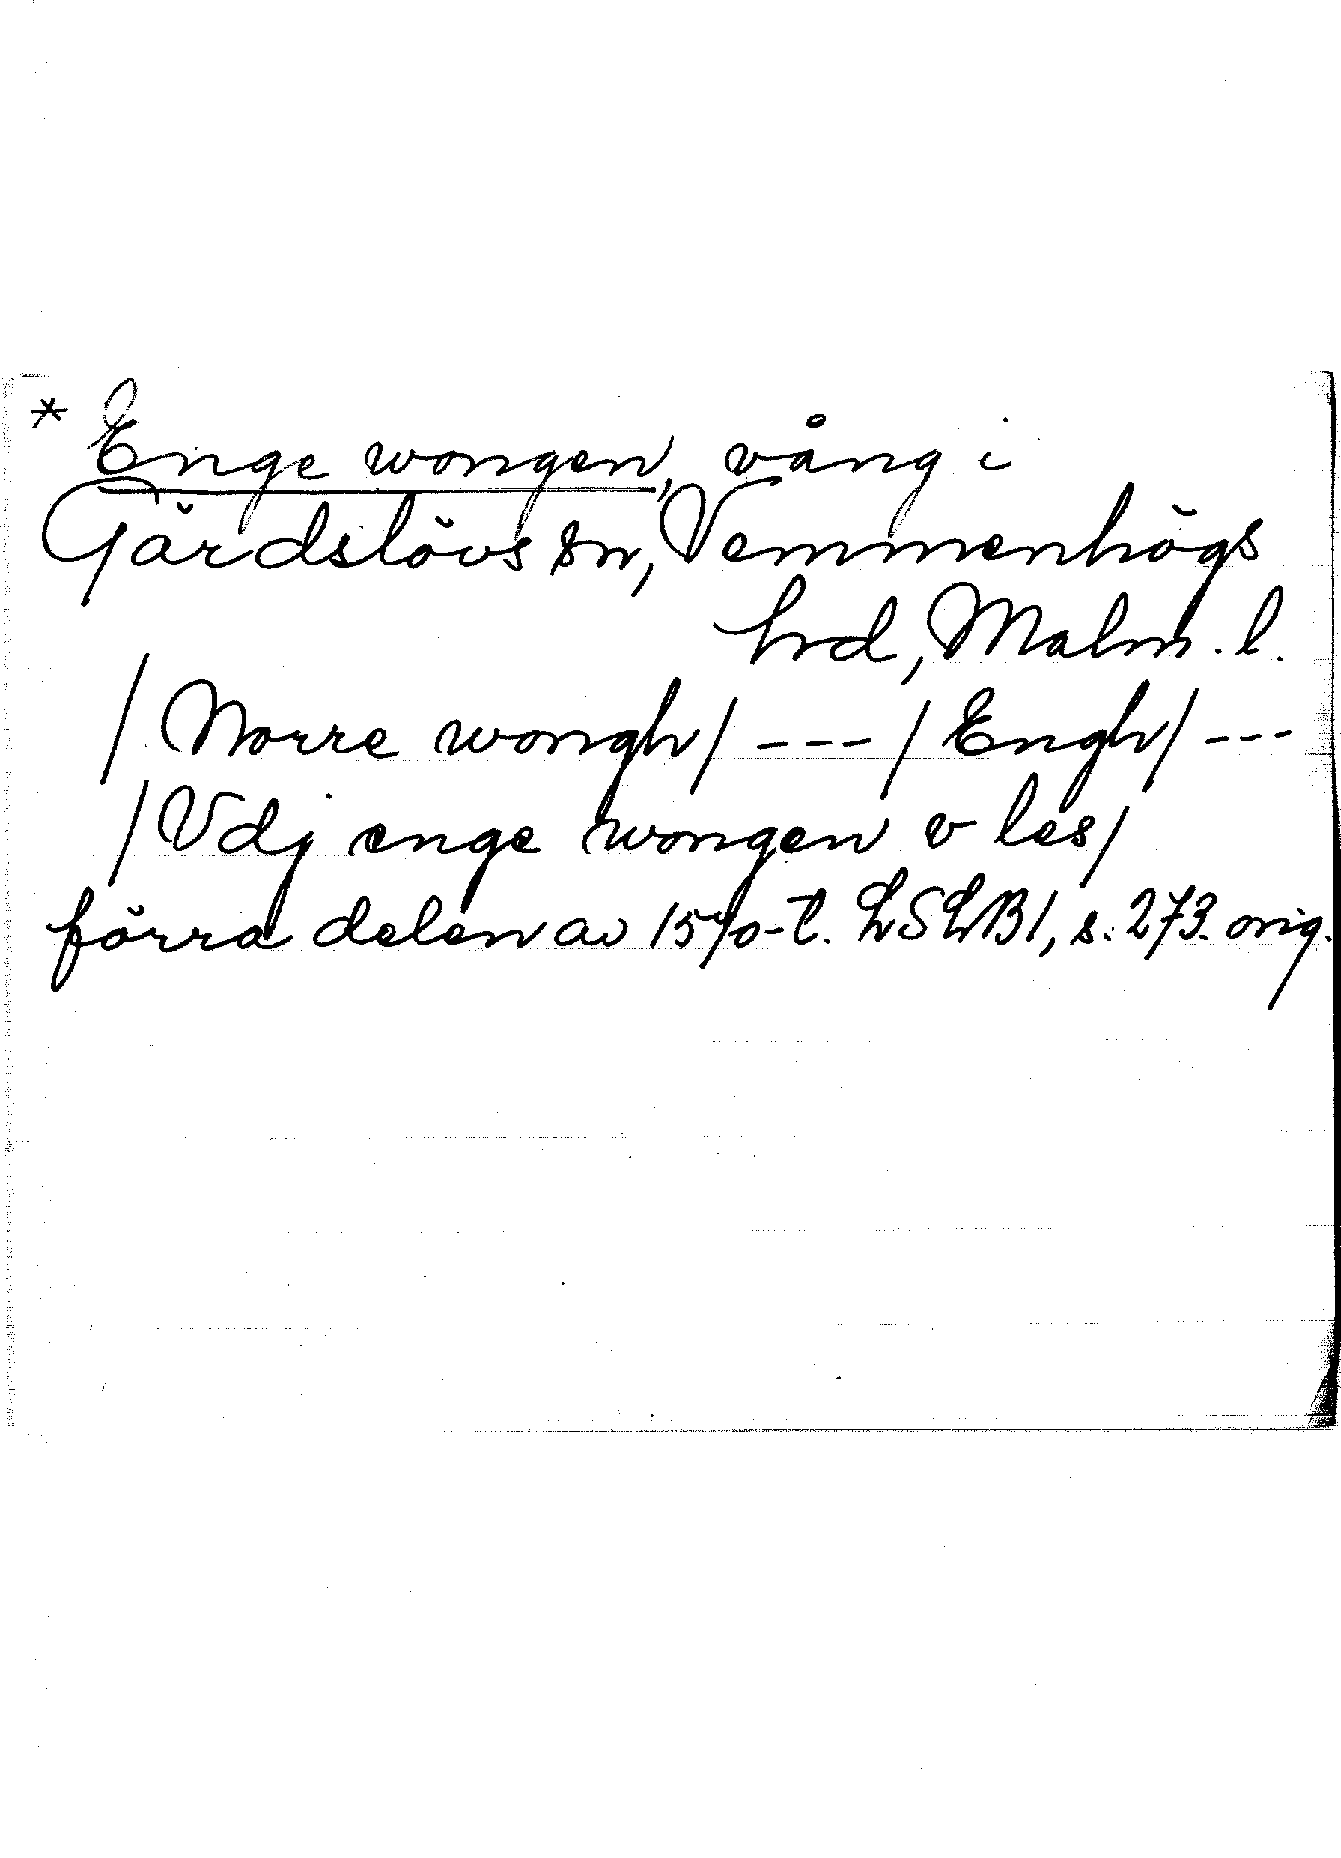 * Enge wongen, vång i
Gärdslövs sn, Vemmenhögs
hrd, Malm. l.
/Norre wongh/ --- /Engh/ ---
/Vdj enge wongen v les/
förra delen av 1570-t. LSLB1, s. 273. orig.